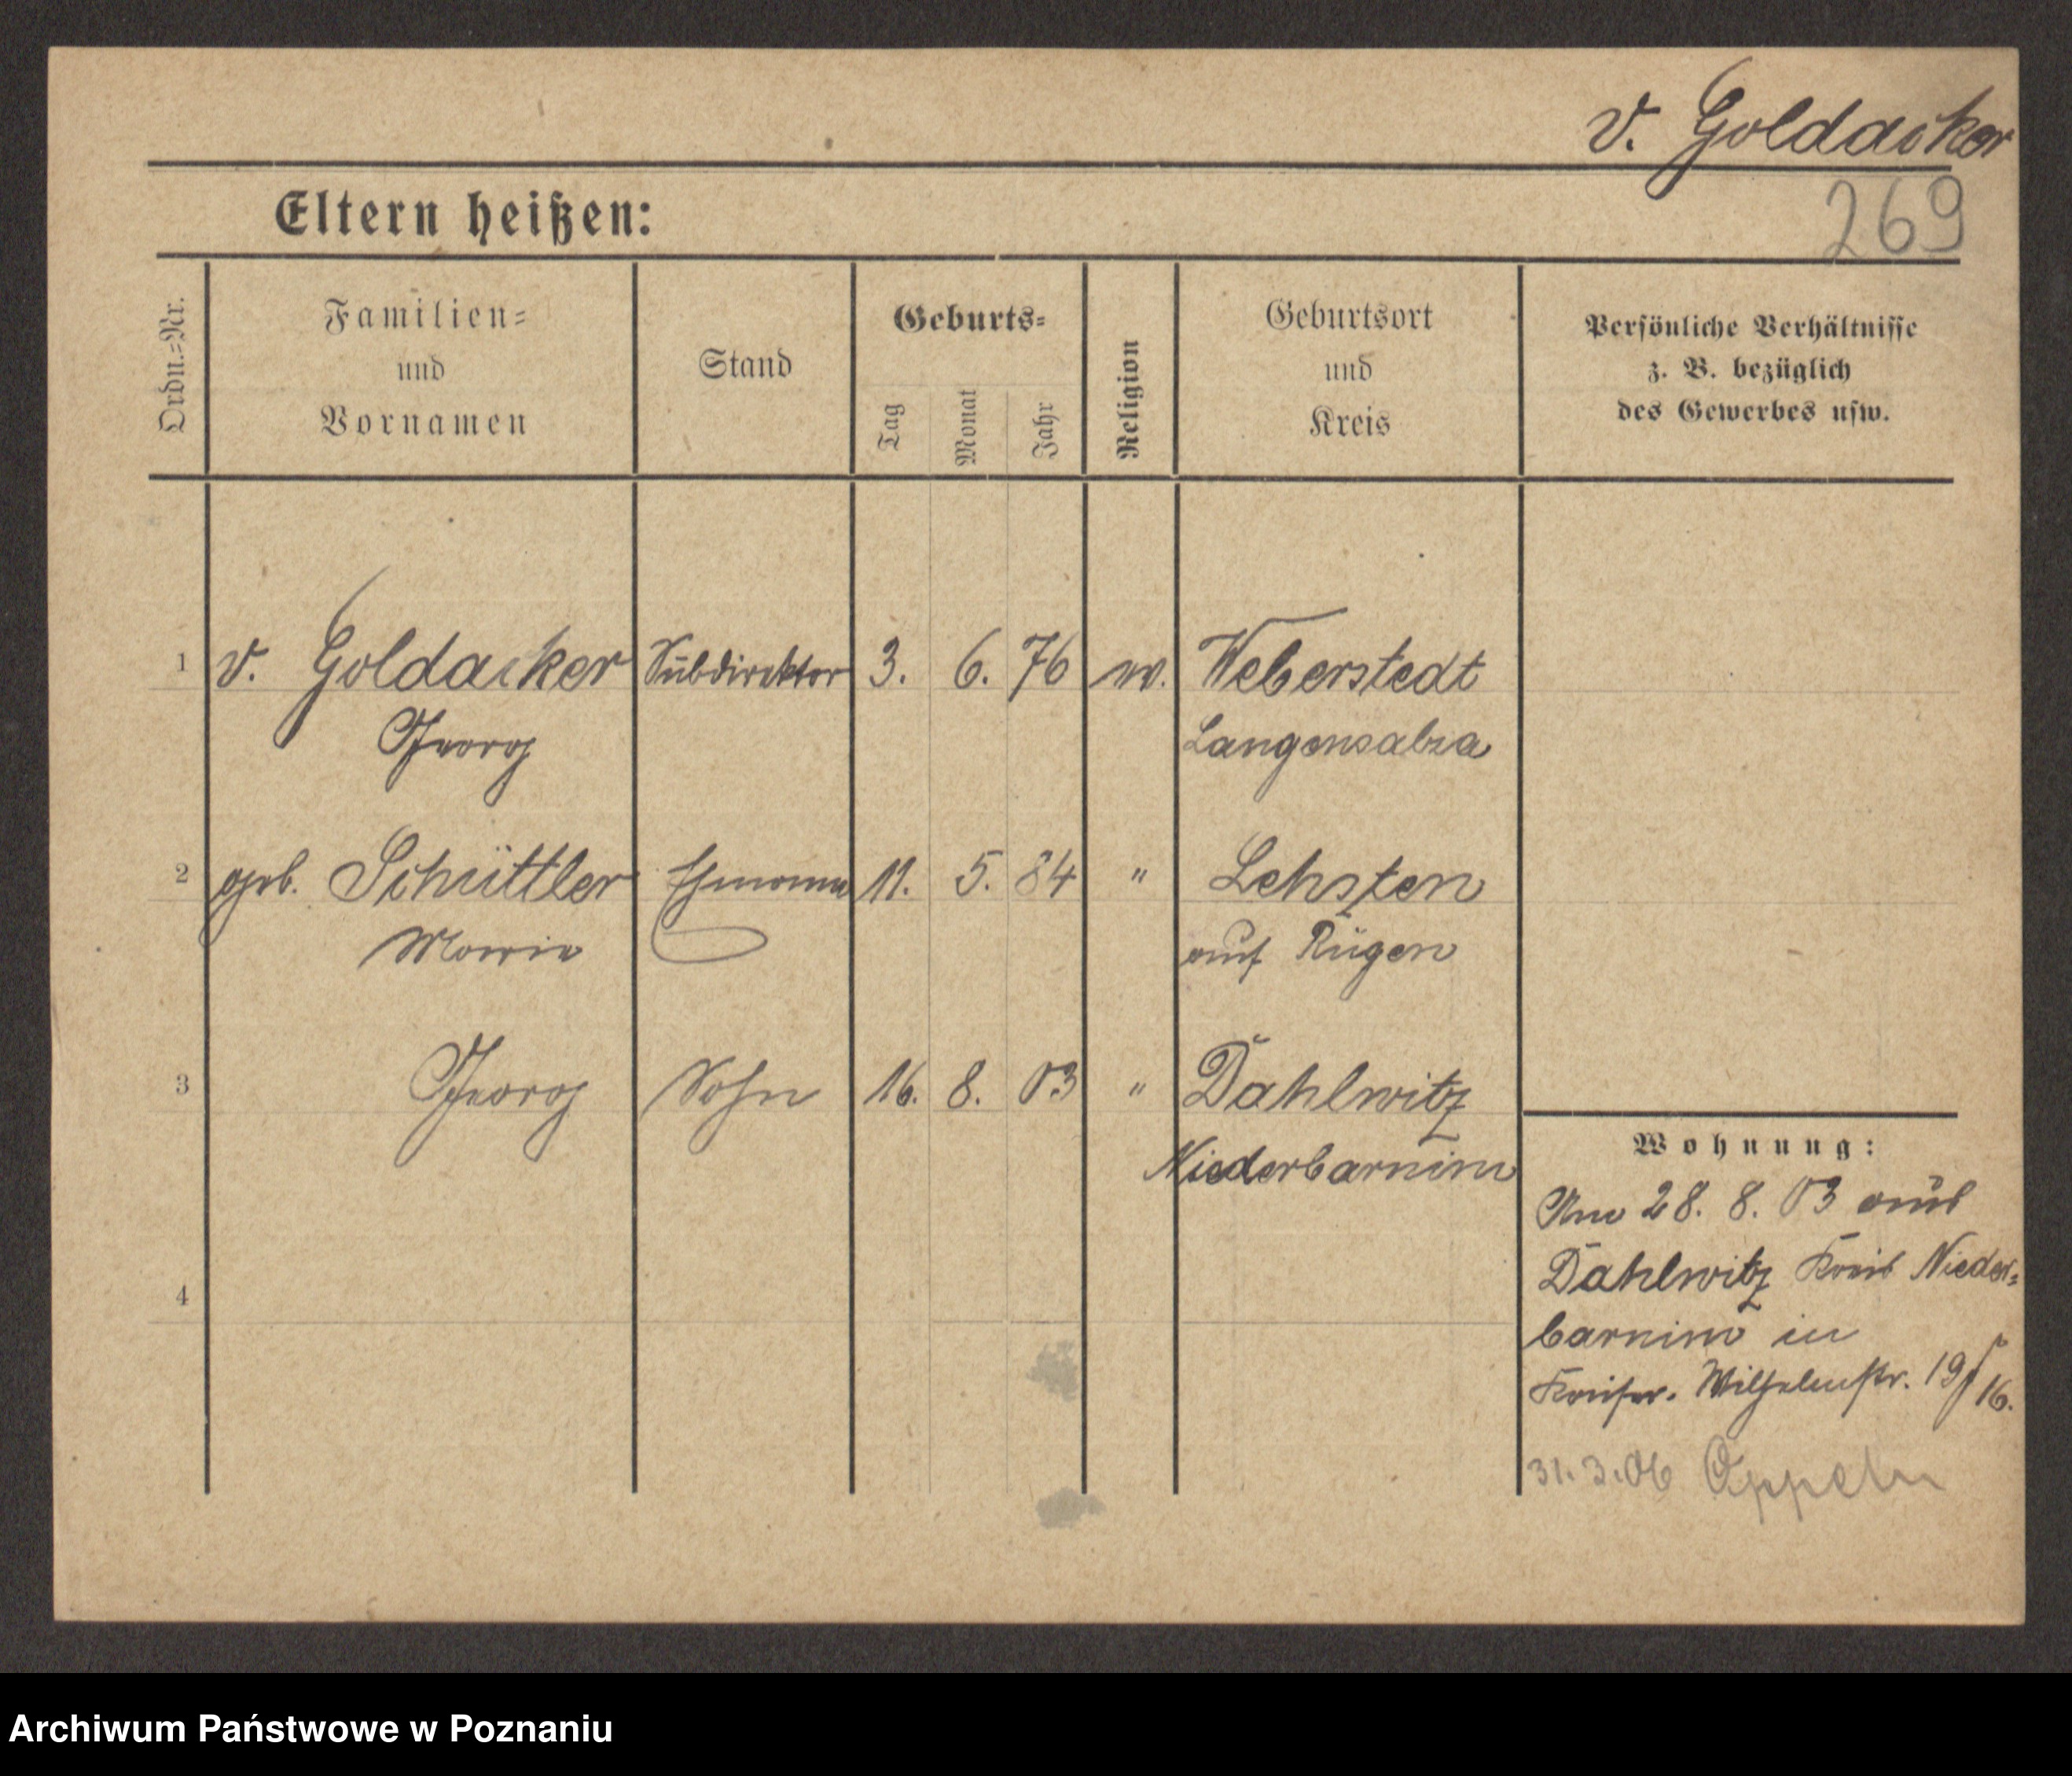 v. Goldacker
269
Eltern heißen:
Ordn.=Nr.
Familien=
und
Vornamen
Stand
Geburts=
Tag
Monat
Jahr
Religion
Geburtsort
und
Kreis
Persönliche Verhältnisse
z. B. bezüglich
des Gewerbes usw.
1 v. Goldacker Subdirektor 3. 6. 76 ev. Weberstedt
Georg Langensalza
2 geb. Schüttler Ehefrau 11. 5. 84 " Lehsten
Marie auf Rügen
3 Georg Sohn 16. 8. 03 " Dahlwitz
Niederbarnim
4
Wohnung:
Am 28. 8. 03 aus
Dahlwitz Kreis Nieder=
barnim in
Wilhelmstr. 19/16.
31.3.06 Oppeln